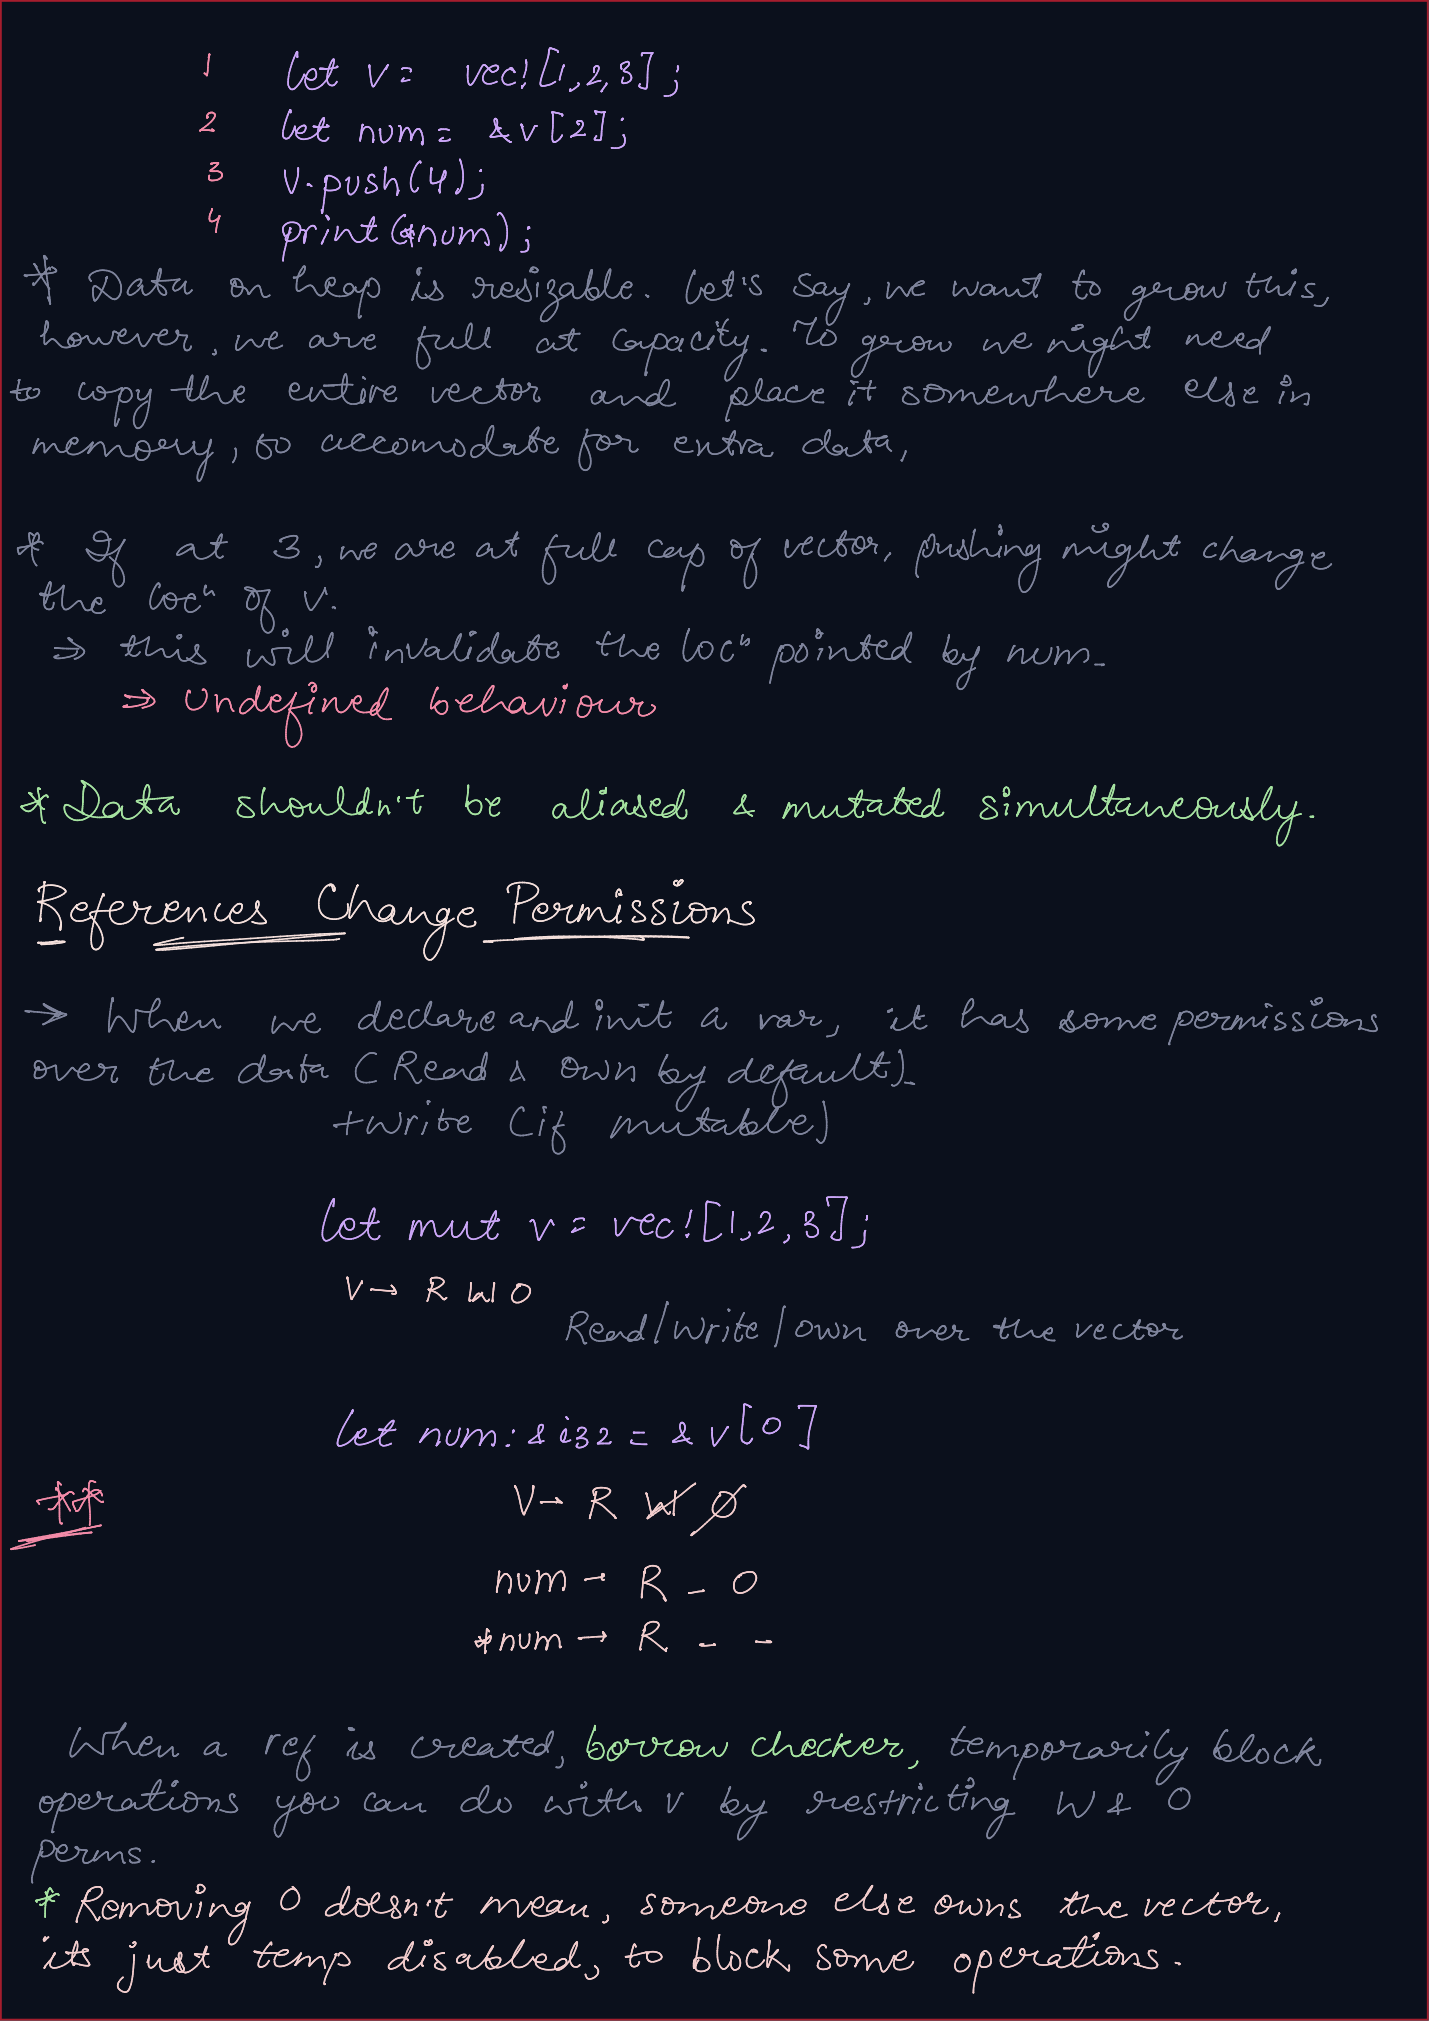 1 let v = vec![1,2,3];
2 let num = &v[2];
3 v.push(4);
4 print(*num);
* Data on heap is resizable. Let's say, we want to grow this,
however, we are full at capacity. To grow we might need
to copy the entire vector and place it somewhere else in
memory, to accomodate for extra data,
* If at 3, we are at full cap of vector, pushing might change
the locⁿ of v.
⇒ this will invalidate the locⁿ pointed by num.
⇒ Undefined behaviour
* Data shouldn't be aliased & mutated simultaneously.
References Change Permissions
→ When we declare and init a var, it has some permissions
over the data (Read & own by default).
+write (if mutable)
let mut v = vec![1,2,3];
V → R W O
Read/Write/own over the vector
let num: &i32 = &v[0]
**
V → R W O
num → R - O
*num → R - -
When a ref is created, borrow checker, temporarily block
operations you can do with v by restricting W & O
perms.
* Removing O doesn't mean, someone else owns the vector,
its just temp disabled, to block some operations.